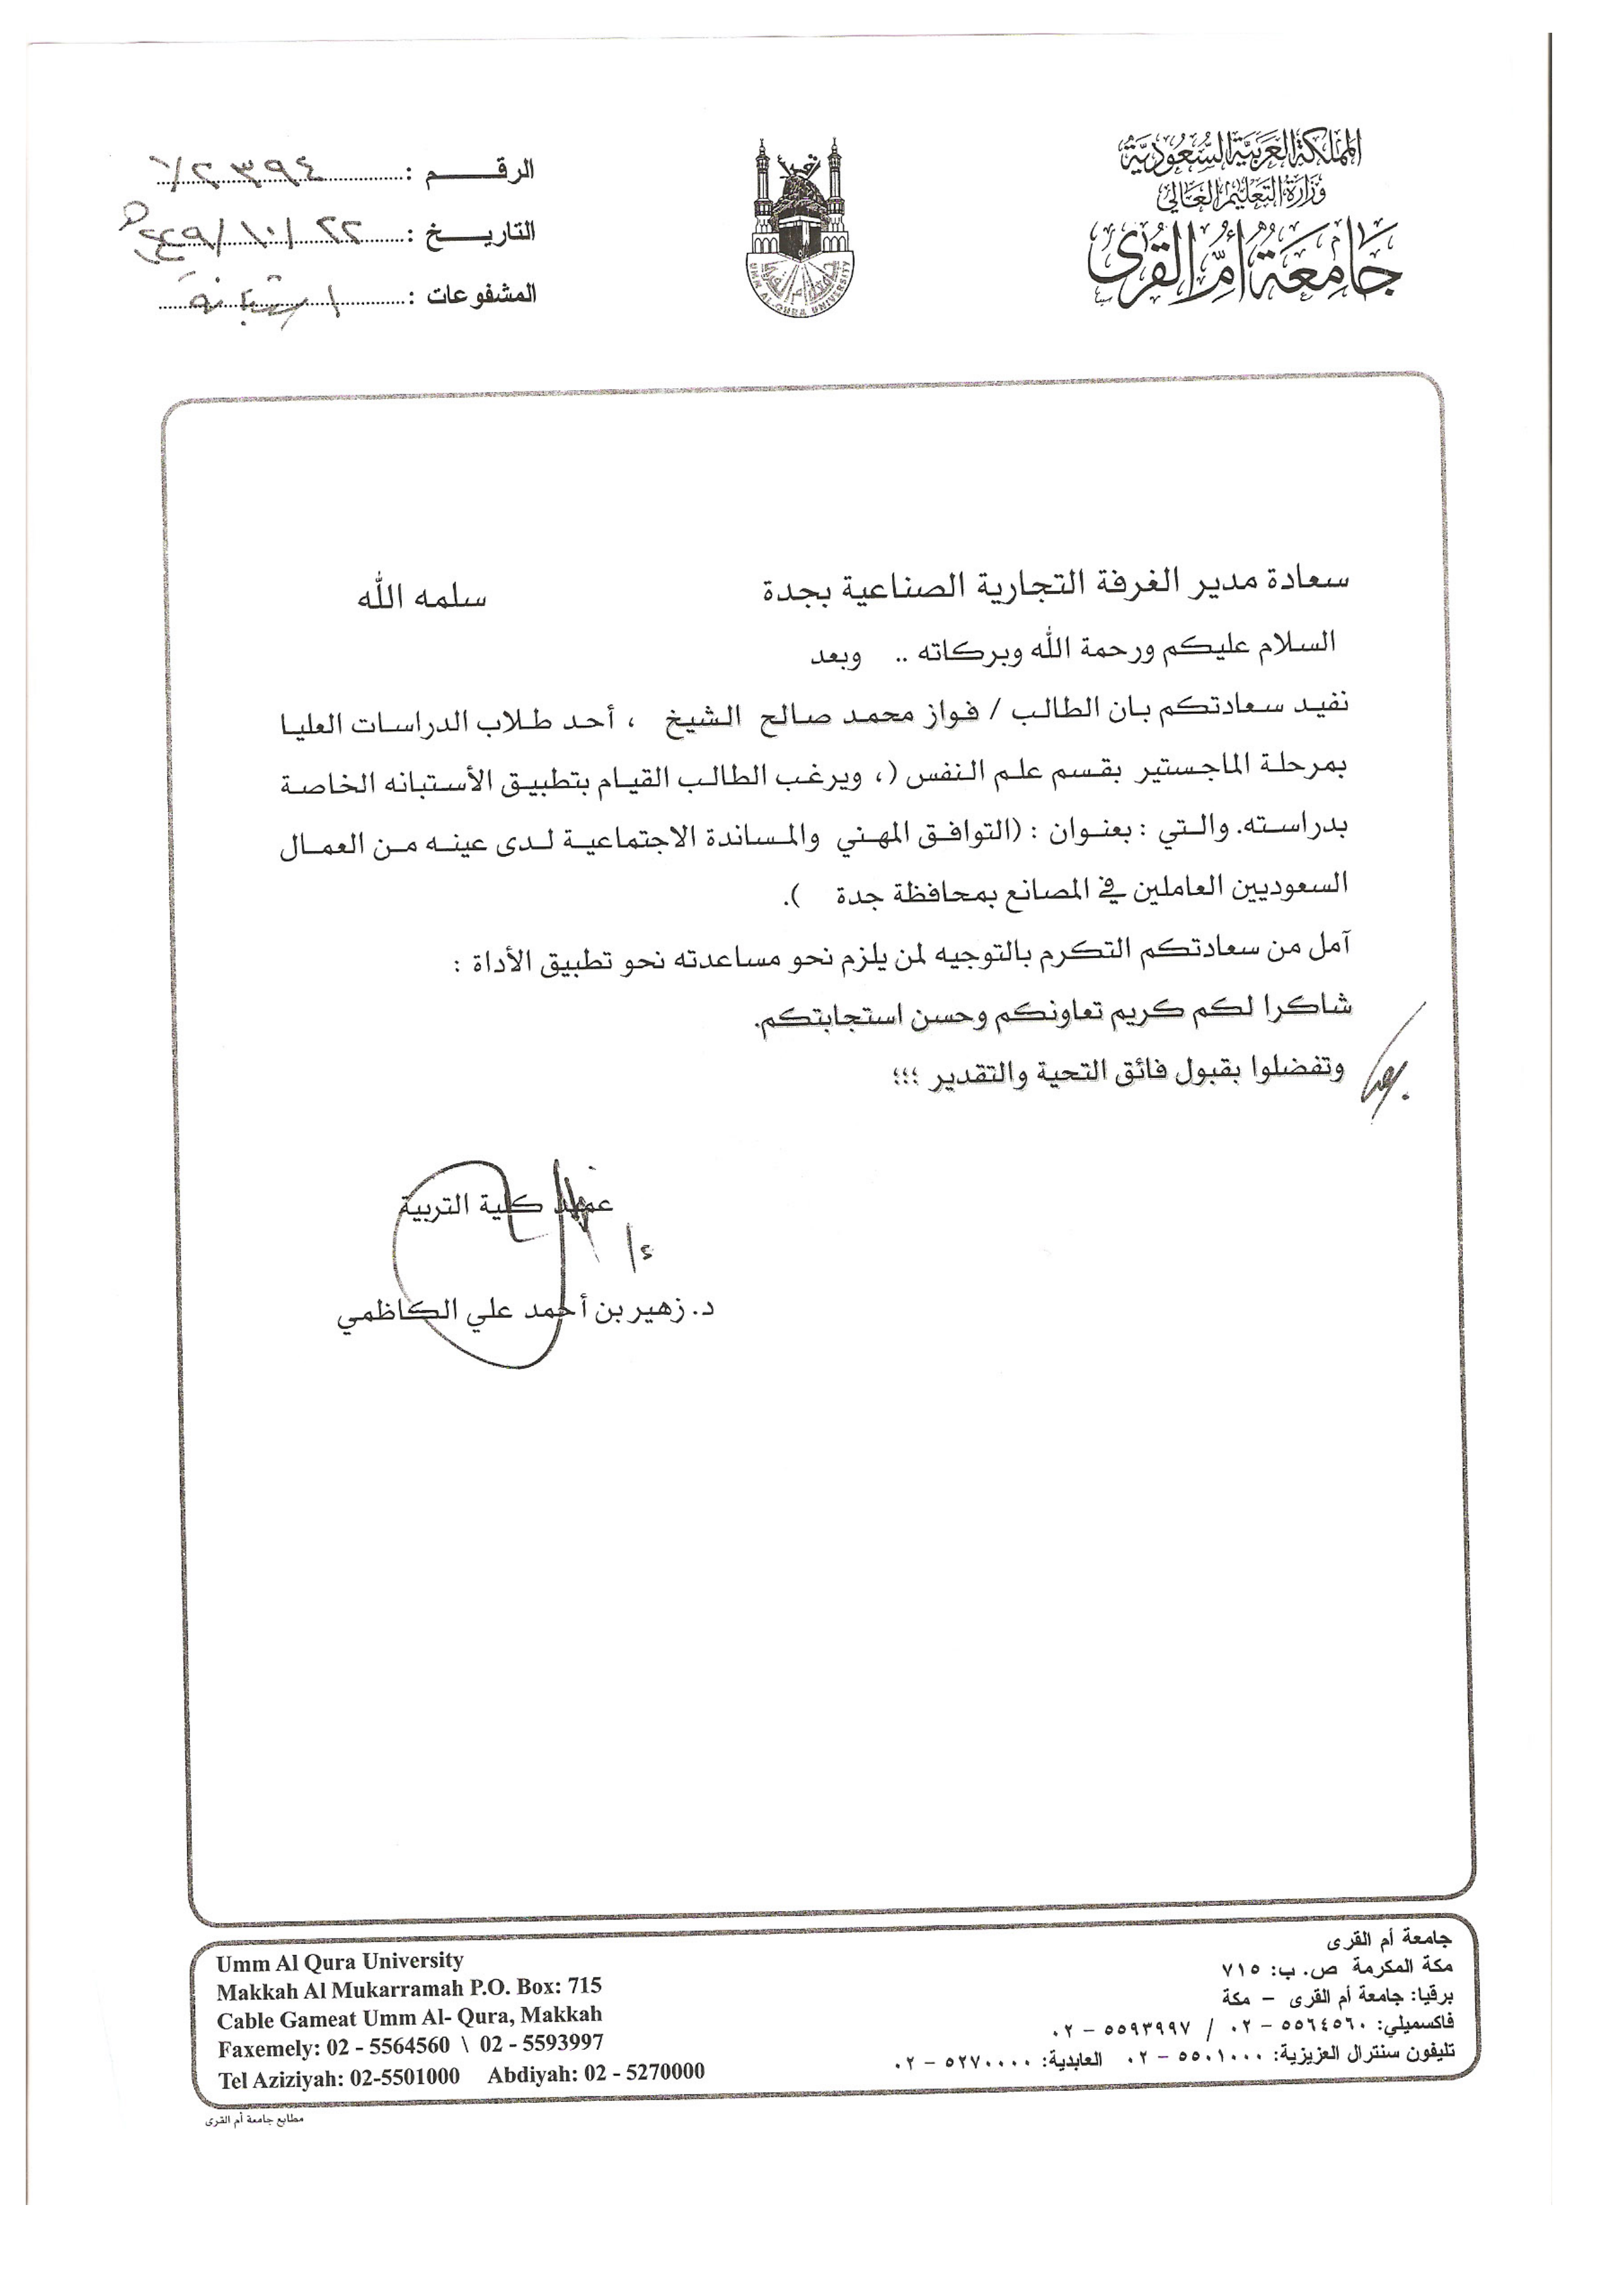 المملكة العربية السعودية
وزارة التعليم العالي
جامعة أم القرى
UMM AL-QURA UNIVERSITY
الرقــــــم :
التاريــــخ : ٢٢/١٠/
المشفوعات : استبانة
سعادة مدير الغرفة التجارية الصناعية بجدة سلمه الله
السلام عليكم ورحمة الله وبركاته .. وبعد
نفيد سعادتكم بان الطالب / فواز محمد صالح الشيخ ، أحد طلاب الدراسات العليا
بمرحلة الماجستير بقسم علم النفس (، ويرغب الطالب القيام بتطبيق الأستبانه الخاصة
بدراسته. والتي : بعنوان : (التوافق المهني والمساندة الاجتماعية لدى عينه من العمال
السعوديين العاملين في المصانع بمحافظة جدة ).
آمل من سعادتكم التكرم بالتوجيه لمن يلزم نحو مساعدته نحو تطبيق الأداة :
شاكرا لكم كريم تعاونكم وحسن استجابتكم.
وتفضلوا بقبول فائق التحية والتقدير ؛؛؛
عميد كلية التربية
د. زهير بن أحمد علي الكاظمي
جامعة أم القرى
مكة المكرمة ص. ب: ٧١٥
برقيا: جامعة أم القرى – مكة
فاكسميلي: ٥٥٦٤٥٦٠ – ٠٢ / ٥٥٩٣٩٩٧ – ٠٢
تليفون سنترال العزيزية: ٥٥٠١٠٠٠ – ٠٢ العابدية: ٥٢٧٠٠٠٠ – ٠٢
Umm Al Qura University
Makkah Al Mukarramah P.O. Box: 715
Cable Gameat Umm Al- Qura, Makkah
Faxemely: 02 - 5564560 \ 02 - 5593997
Tel Aziziyah: 02-5501000 Abdiyah: 02 - 5270000
مطابع جامعة أم القرى